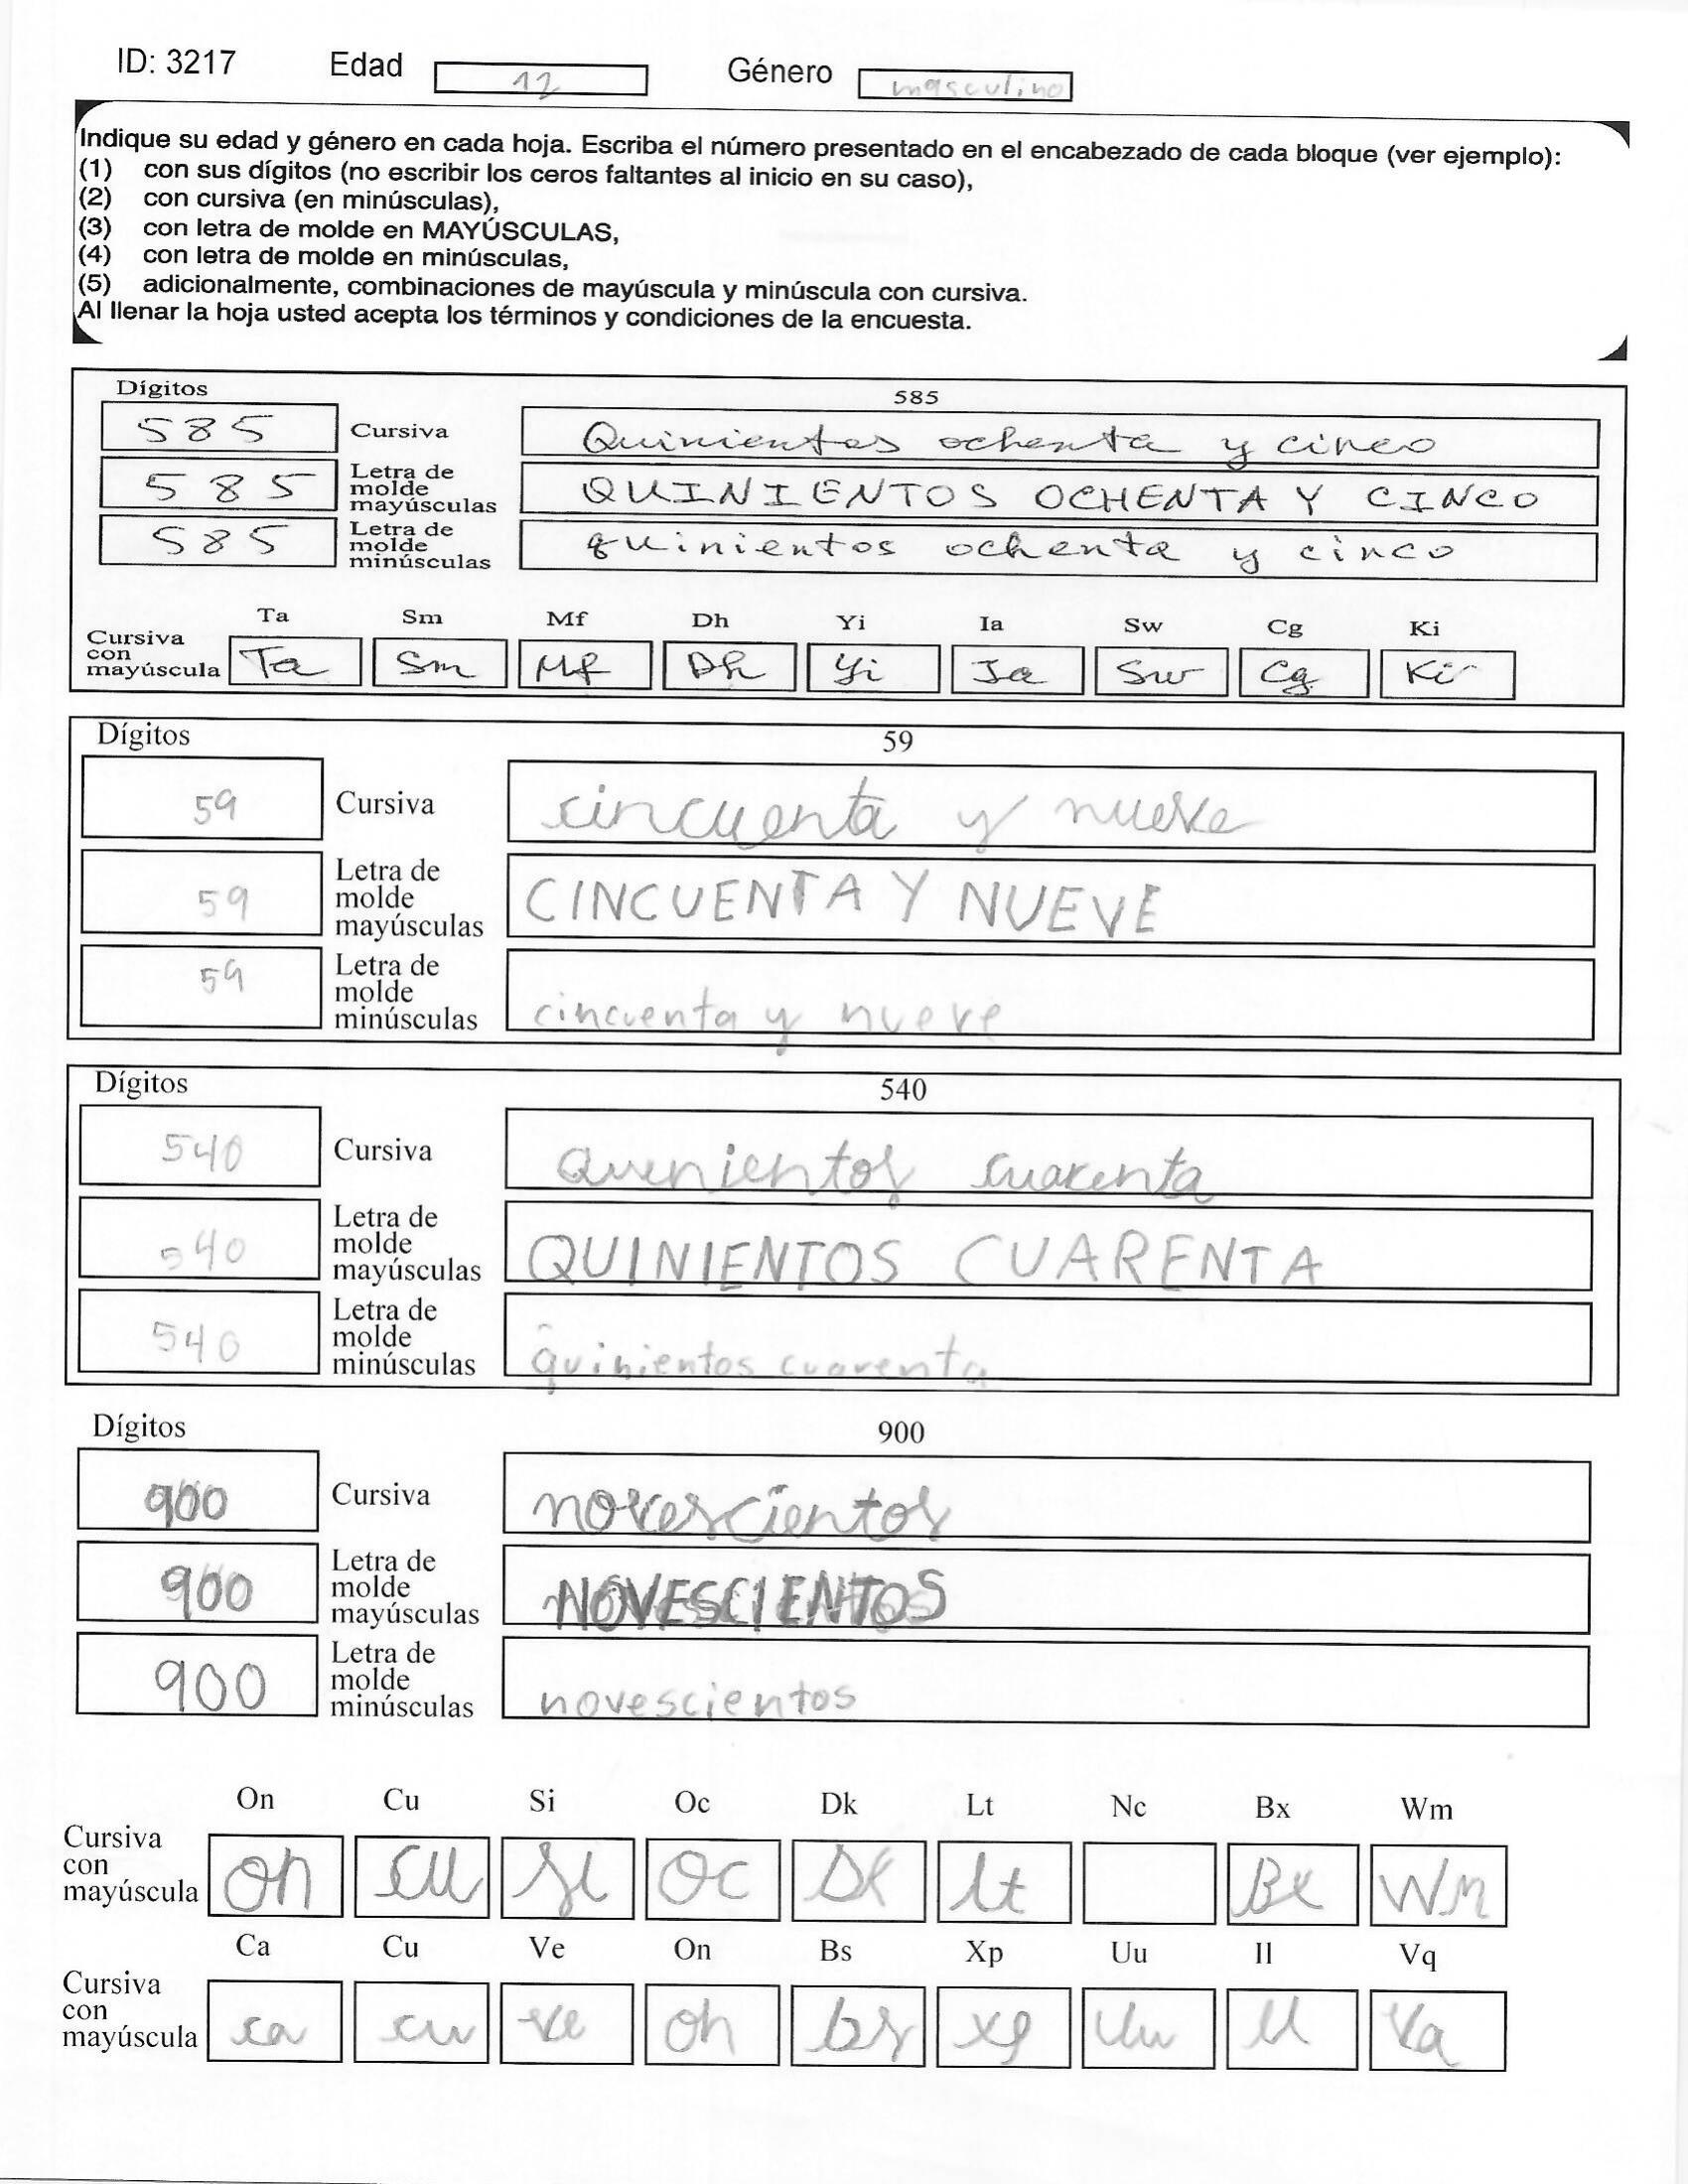 ID: 3217 Edad 12 Género masculino
Indique su edad y género en cada hoja. Escriba el número presentado en el encabezado de cada bloque (ver ejemplo):
(1) con sus dígitos (no escribir los ceros faltantes al inicio en su caso),
(2) con cursiva (en minúsculas),
(3) con letra de molde en MAYÚSCULAS,
(4) con letra de molde en minúsculas,
(5) adicionalmente, combinaciones de mayúscula y minúscula con cursiva.
Al llenar la hoja usted acepta los términos y condiciones de la encuesta.
Dígitos 585
585 Cursiva Quinientos ochenta y cinco
585 Letra de molde mayúsculas QUINIENTOS OCHENTA Y CINCO
585 Letra de molde minúsculas quinientos ochenta y cinco
Ta Sm Mf Dh Yi Ia Sw Cg Ki
Cursiva con mayúscula Ta Sm Mf Dh Yi Ia Sw Cg Ki
Dígitos 59
59 Cursiva cincuenta y nueve
59 Letra de molde mayúsculas CINCUENTA Y NUEVE
59 Letra de molde minúsculas cincuenta y nueve
Dígitos 540
540 Cursiva quenientos cuarenta
540 Letra de molde mayúsculas QUINIENTOS CUARENTA
540 Letra de molde minúsculas quinientos cuarenta
Dígitos 900
900 Cursiva novescientos
900 Letra de molde mayúsculas NOVESCIENTOS
900 Letra de molde minúsculas novescientos
On Cu Si Oc Dk Lt Nc Bx Wm
Cursiva con mayúscula On cu si Oc Dk lt Bx Wm
Ca Cu Ve On Bs Xp Uu Il Vq
Cursiva con mayúscula ca cu ve on bs xp Uu Il Vq